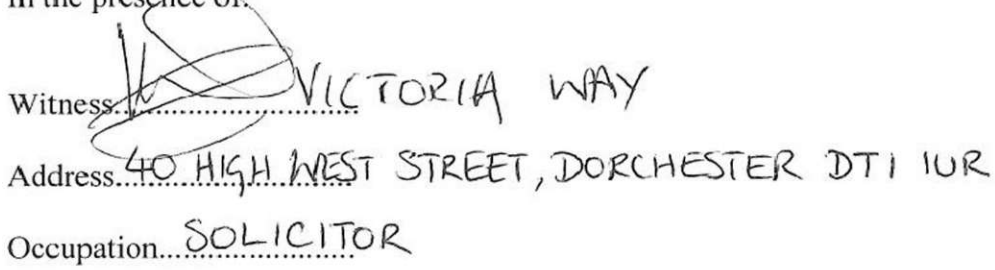 in the presence of:
Witness.................................... VICTORIA WAY
Address...40 HIGH WEST STREET, DORCHESTER DT1 1UR
Occupation...SOLICITOR